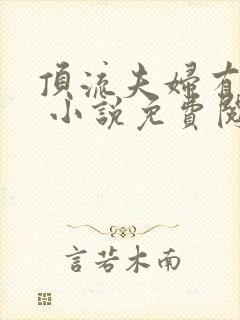 頂流夫婦有
小說免費閱
言若木南